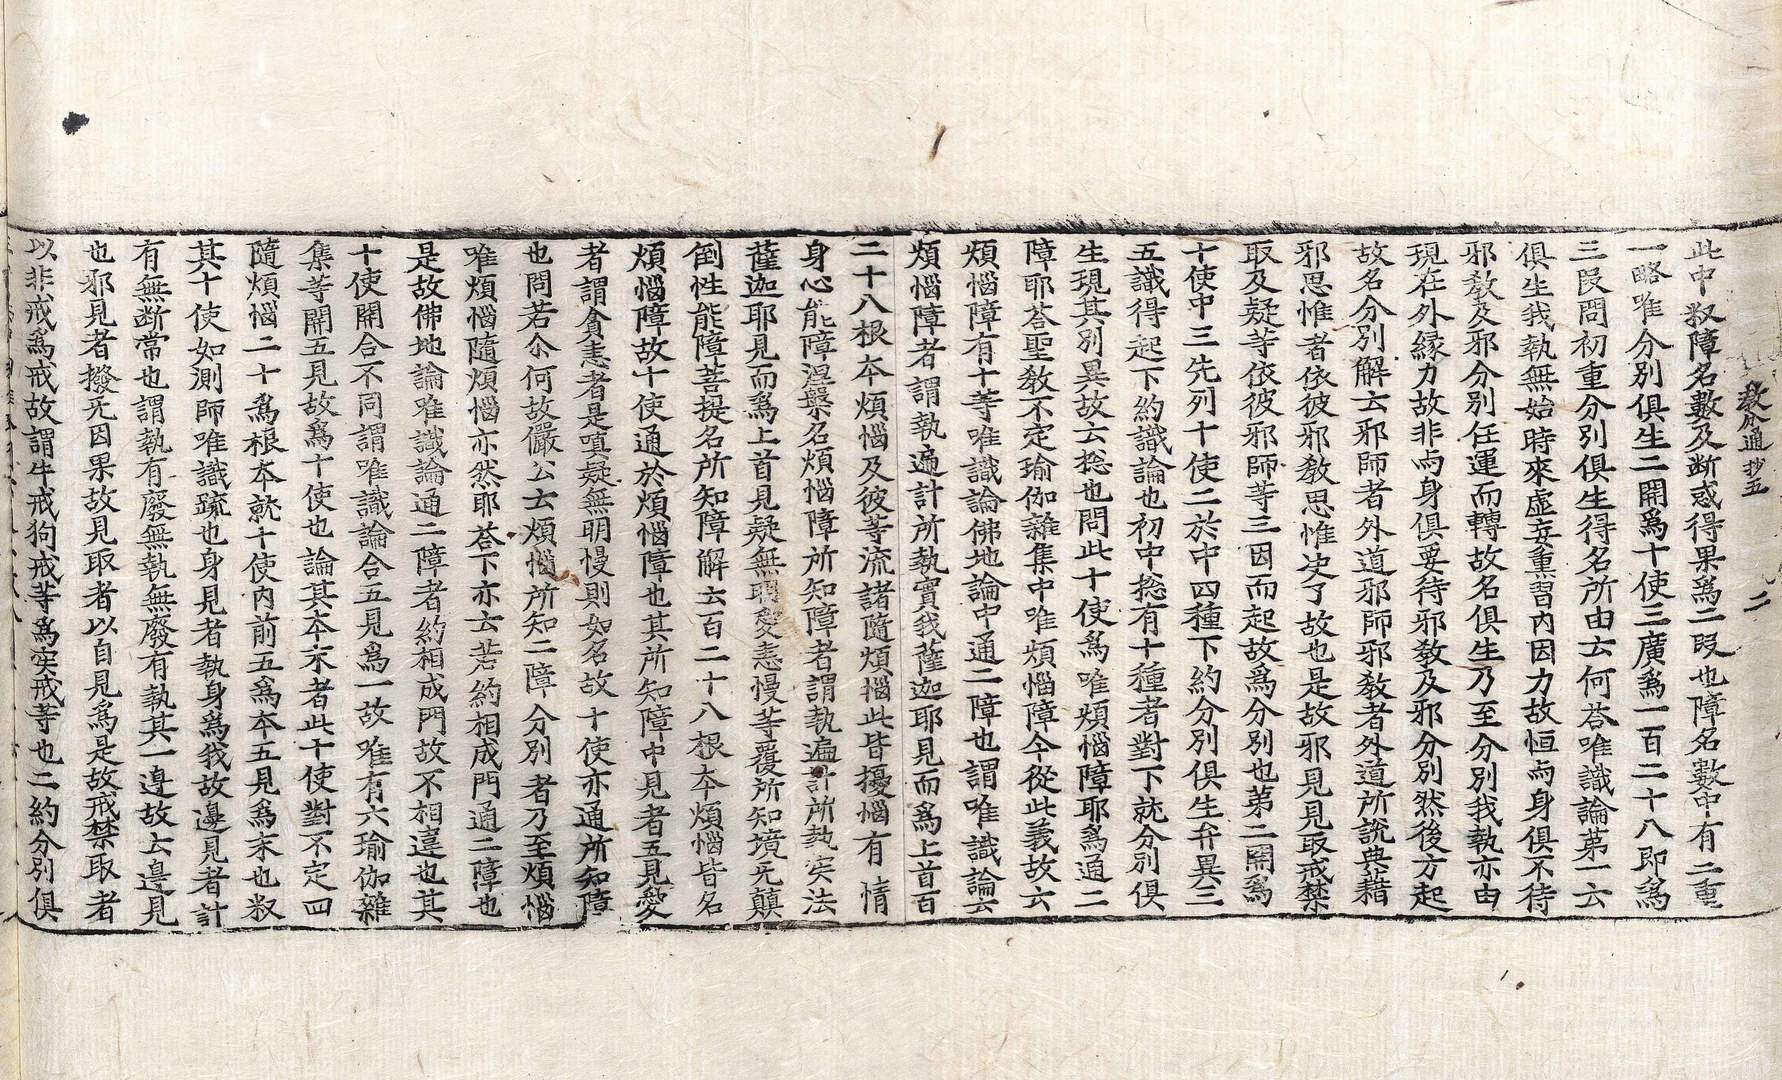 教分通抄五　二
此中叙障名數及断惑得果爲二段也障名數中有二重
一略唯分別俱生二開爲十使三廣爲一百二十八即爲
三段問初重分別俱生得名所由云何荅唯識論第一云
俱生我執無始時來虛妄熏習內因力故恒与身俱不待
邪敎及邪分別任運而轉故名俱生乃至分別我執亦由
現在外緣力故非与身俱要待邪敎及邪分別然後方起
故名分別解云邪師者外道邪師邪敎者外道所說典藉
邪思惟者依彼邪敎思惟决了故也是故邪見見取戒禁
取及疑等依彼邪師等三因而起故爲分別也第二開爲
十使中三先列十使二於中四種下約分別俱生弁異三
五識得起下約識論也初中捴有十種者對下就分別俱
生現其別異故云捴也問此十使爲唯煩惱障耶爲通二
障耶荅聖敎不定瑜伽雜集中唯煩惱障今從此義故六
煩惱障有十等唯識論佛地論中通二障也謂唯識論云
煩惱障者謂執遍計所執實我薩迦耶見而爲上首百
二十八根本煩惱及彼等流諸隨煩惱此皆擾惱有情
身心能障涅槃名煩惱障所知障者謂執遍計所執实法
薩迦耶見而爲上首見疑無明愛恚慢等覆所知境无顛
倒性能障菩提名所知障解云百二十八根本煩惱皆名
煩惱障故十使通於煩惱障也其所知障中見者五見愛
者謂貪恚者是嗔疑無明慢則如名故十使亦通所知障
也問若尒何故儼公云煩惱所知二障分別者乃至煩惱
唯煩惱隨煩惱亦然耶荅下亦云若約相成門通二障也
是故佛地論唯識論通二障者約相成門故不相違也其
十使開合不同謂唯識論合五見爲一故唯有六瑜伽雜
集等開五見故爲十使也論其本末者此十使對不定四
隨煩惱二十爲根本就十使內前五爲本五見爲末也叙
其十使如測師唯識疏也身見者執身爲我故邊見者計
有無断常也謂執有廢無執無廢有執其一邊故云邊見
也邪見者撥无因果故見取者以自見爲是故戒禁取者
以非戒爲戒故謂牛戒狗戒等爲实戒等也二約分別俱